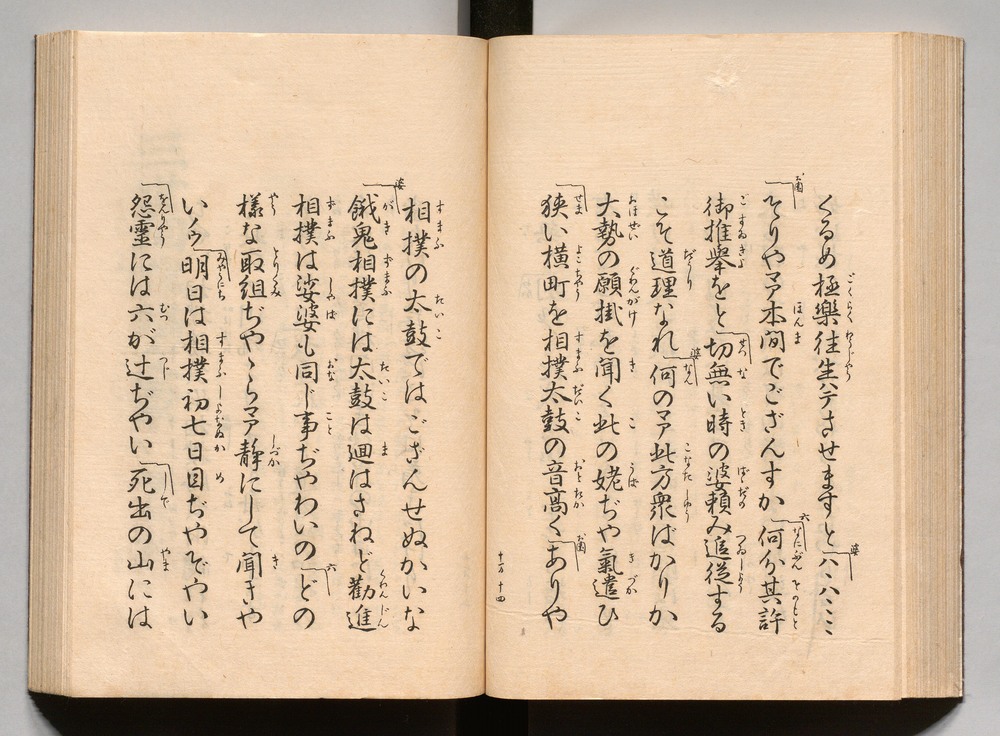 くるめ極樂往生ハテさせますと ハハハミミ
そりやマア本間でござんすか 何分其許
御推擧をと 切無い時の婆頼み追從する
こそ道理なれ 何のマア此方衆ばかりか
大勢の願掛を聞く此の姥ぢや氣遣ひ
狹い横町を相撲太鼓の音高く ありや
相撲の太鼓ではござんせぬかいな
餓鬼相撲には太鼓は廻はさねど勸進
相撲は娑婆も同じ事ぢやわいの どの
樣な取組ぢやゝらマア靜にして聞きや
いノウ 明日は相撲初七日目ぢやぞやい
怨靈には六が辻ぢやい 死出の山には
十一ノ十四